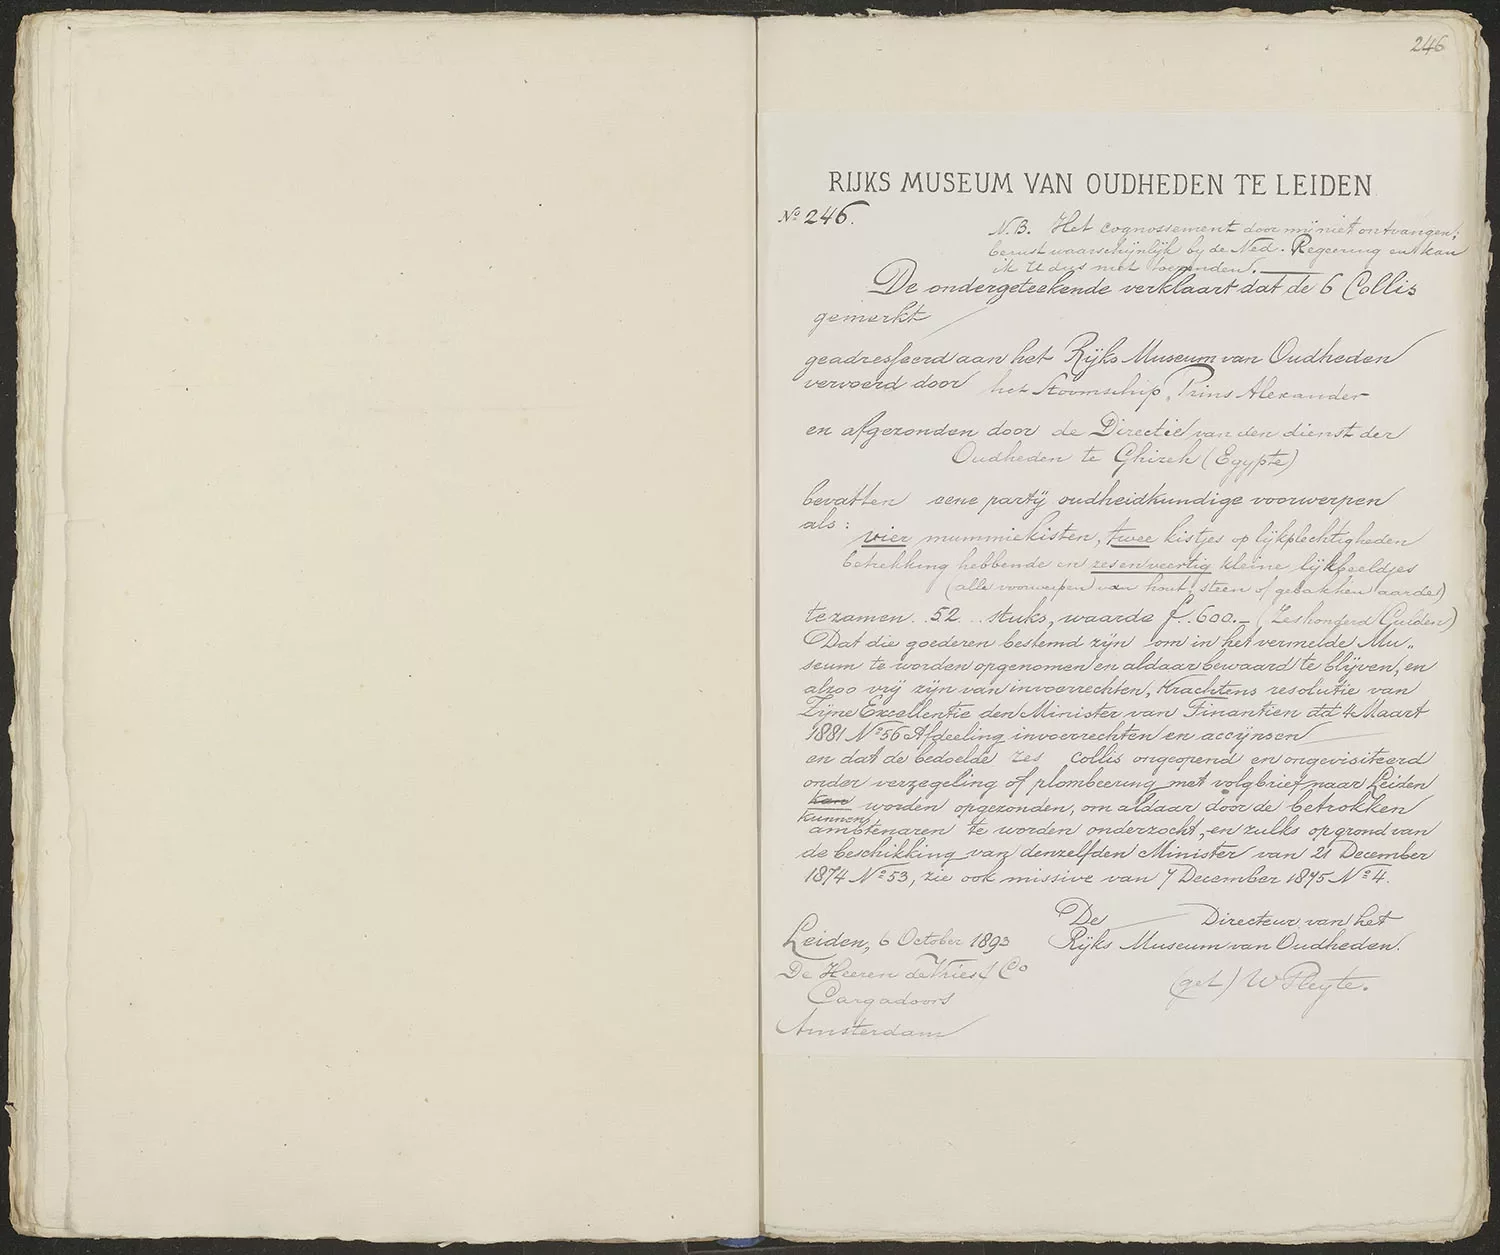 246
RIJKS MUSEUM VAN OUDHEDEN TE LEIDEN
No 246.
N.B. Het cognossement door mij niet ontvangen;
berust waarschijnlijk bij de Ned. Regeering en kan
ik U dus niet toezenden.
De ondergeteekende verklaart dat de 6 Collis
gemerkt
geadresseerd aan het Rijks Museum van Oudheden
vervoerd door het Stoomschip "Prins Alexander
en afgezonden door de Directie van den dienst der
Oudheden te Ghizeh (Egypte)
bevatten eene partij oudheidkundige voorwerpen
als:
vier mummiekisten, twee kistjes op lijkplechtigheden
betrekking hebbende en zesenveertig kleine lijkbeeldjes
(alle voorwerpen van hout, steen of gebakken aarde)
tezamen 52 stuks, waarde f. 600.- (Zeshonderd Gulden)
Dat die goederen bestemd zijn om in het vermelde Mu„
seum te worden opgenomen en aldaar bewaard te blijven, en
alzoo vrij zijn van invoerrechten, krachtens resolutie van
Zijne Excellentie den Minister van Financiën dd 4 Maart
1881 No 56 Afdeeling invoerrechten en accijnsen
en dat de bedoelde zes collis ongeopend en ongevisiteerd
onder verzegeling of plombeering met volgbrief naar Leiden
kan worden opgezonden, om aldaar door de betrokken
kunnen
ambtenaren te worden onderzocht, en zulks op grond van
de beschikking van denzelfden Minister van 21 December
1874 No 53, zie ook missive van 7 December 1875 No 4.
De Directeur van het
Rijks Museum van Oudheden.
(get) W Pleyte.
Leiden, 6 October 1893
De Heeren de Vries & Co
Cargadoors
Amsterdam